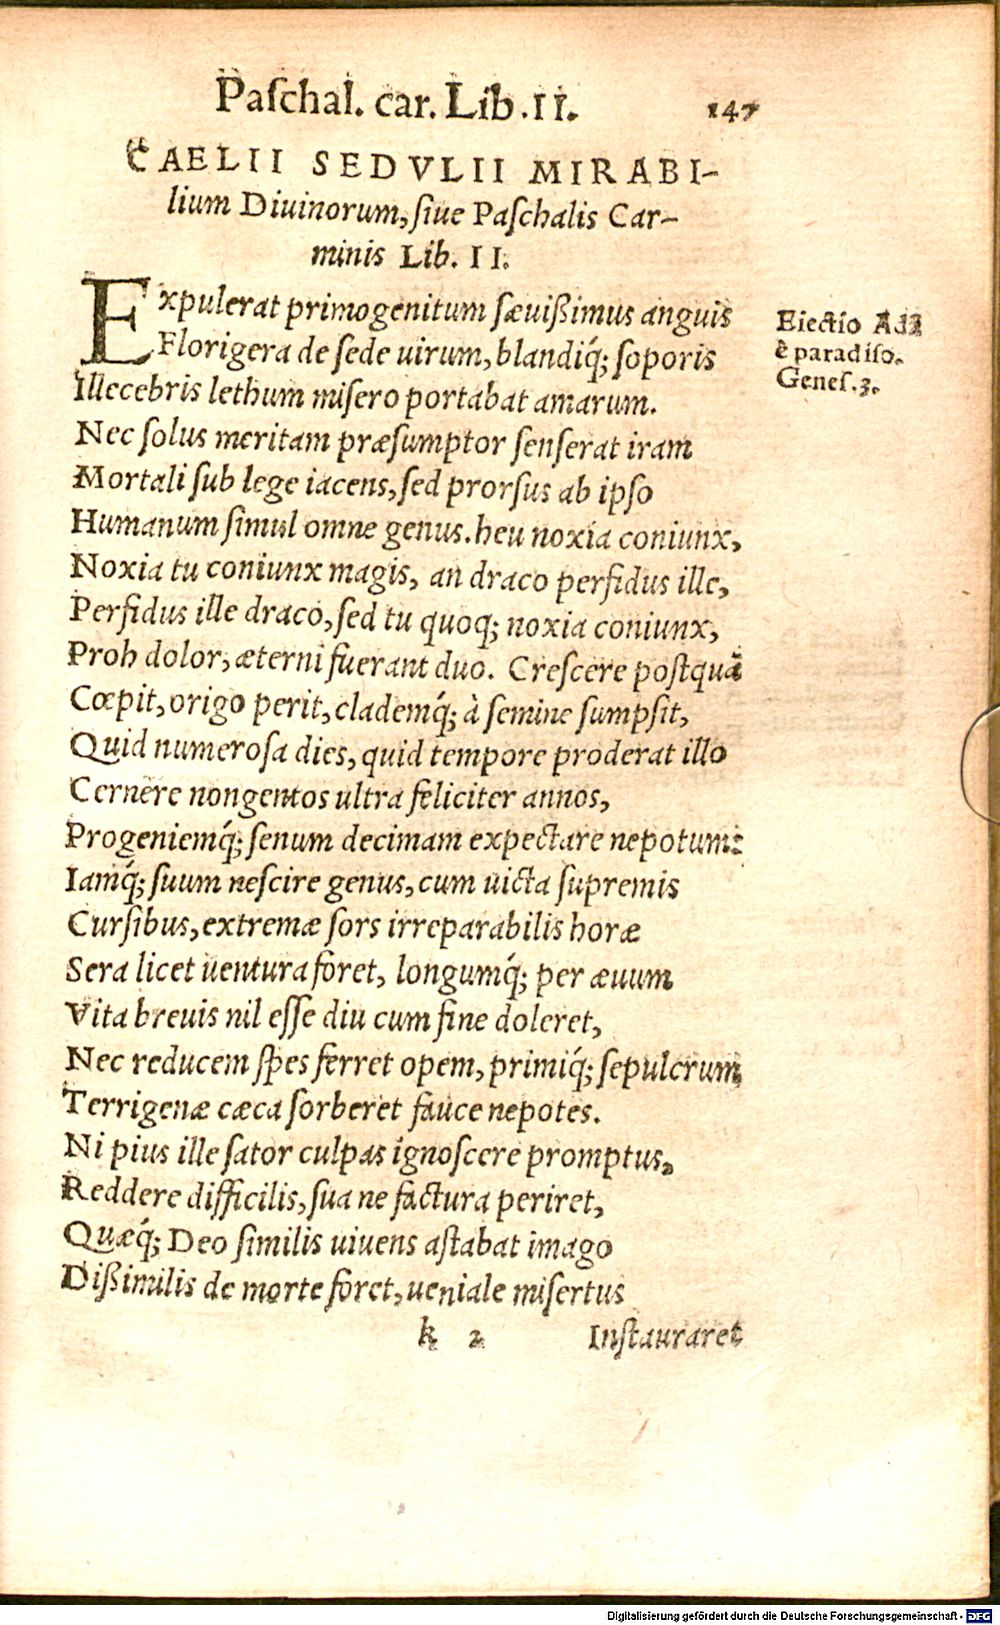 Paſchal. car. Lib. II. 147
CAELII SEDVLII MIRABI-
lium Diuinorum, ſiue Paſchalis Car-
minis Lib. II.
Expulerat primogenitum ſæuißimus anguis
Florigera de ſede uirum, blandiq́; ſoporis
Illecebris lethum miſero portabat amarum.
Eiectio Adã
è paradiſo.
Geneſ. 3.
Nec ſolus meritam præſumptor ſenſerat iram
Mortali ſub lege iacens, ſed prorſus ab ipſo
Humanum ſimul omne genus. heu noxia coniunx,
Noxia tu coniunx magis, an draco perfidus ille,
Perfidus ille draco, ſed tu quoq; noxia coniunx,
Proh dolor, æterni fuerant duo. Creſcere poſtquã
Cœpit, origo perit, clademq́; à ſemine ſumpſit,
Quid numeroſa dies, quid tempore proderat illo
Cernere nongentos ultra feliciter annos,
Progeniemq́; ſenum decimam expectare nepotum:
Iamq́; ſuum neſcire genus, cum uicta ſupremis
Curſibus, extremæ ſors irreparabilis horæ
Sera licet uentura foret, longumq́; per æuum
Vita breuis nil eſſe diu cum fine doleret,
Nec reducem ſpes ferret opem, primiq́; ſepulcrum
Terrigenæ cæca ſorberet fauce nepotes.
Ni pius ille ſator culpas ignoſcere promptus,
Reddere difficilis, ſua ne factura periret,
Quæq́; Deo ſimilis uiuens aſtabat imago
Dißimilis de morte foret, ueniale miſertus
k 2 Inſtauraret
Digitalisierung gefördert durch die Deutsche Forschungsgemeinschaft - DFG